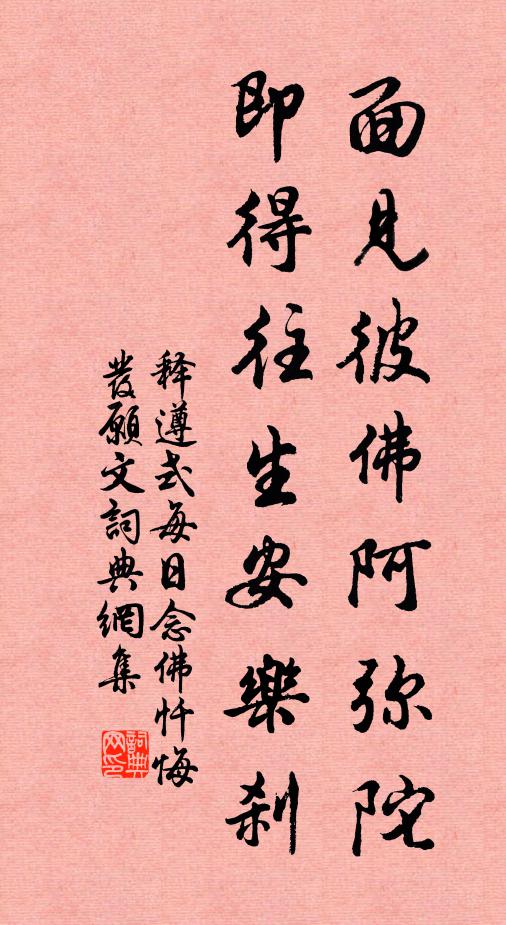 面見彼佛阿弥陀
即得往生安樂刹
释遵式每日念佛忏悔
發願文詞典網集
詞典
网印